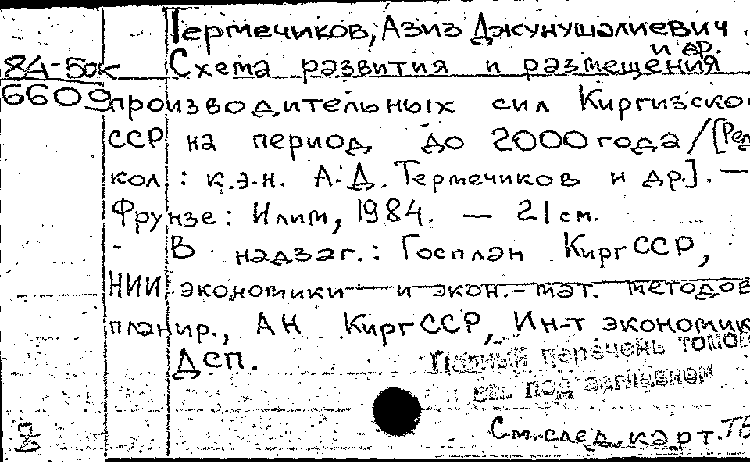 Термечиков, Азиз Джунушалиевич
и др.
84-50к Схема развития и размещения
6609 производительных сил Киргизско
ССР на период до 2000 года / [Ред
кол.: к.э.н. А.Д. Термечиков и др]. —
Фрунзе: Илим, 1984. — 21 см.
- В надзаг.: Госплан Кирг ССР,
НИИ экономики и экон.-мат. методов
планир., АН Кирг ССР, Ин-т экономик
ДСП.
Полный перечень томов
см. под заглавием
См. след. карт.